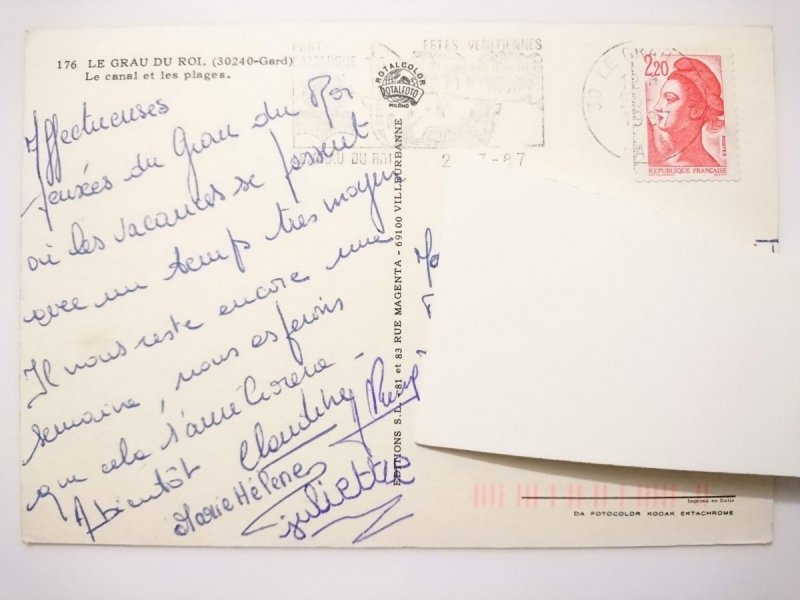 176 LE GRAU DU ROI. (30240-Gard)
Le canal et les plages.
Affectueuses
pensées du Grau du Roi
où les vacances se passent
avec un temp très moyen
Il nous reste encore une
semaine, nous espérons
que cela s'améliorera.
A bientôt Claudine
Marie Hélène
Juliette
PORT
CAMARGUE
FETES VENITIENNES
GRAU DU ROI
2 -7-87
ROTALCOLOR
ROTALFOTO
MILANO
EDITIONS S.L. - 81 et 83 RUE MAGENTA - 69100 VILLEURBANNE
30 LE GRAU
2,20
POSTES
REPUBLIQUE FRANÇAISE
Imprimé en Italie
DA FOTOCOLOR KODAK EKTACHROME